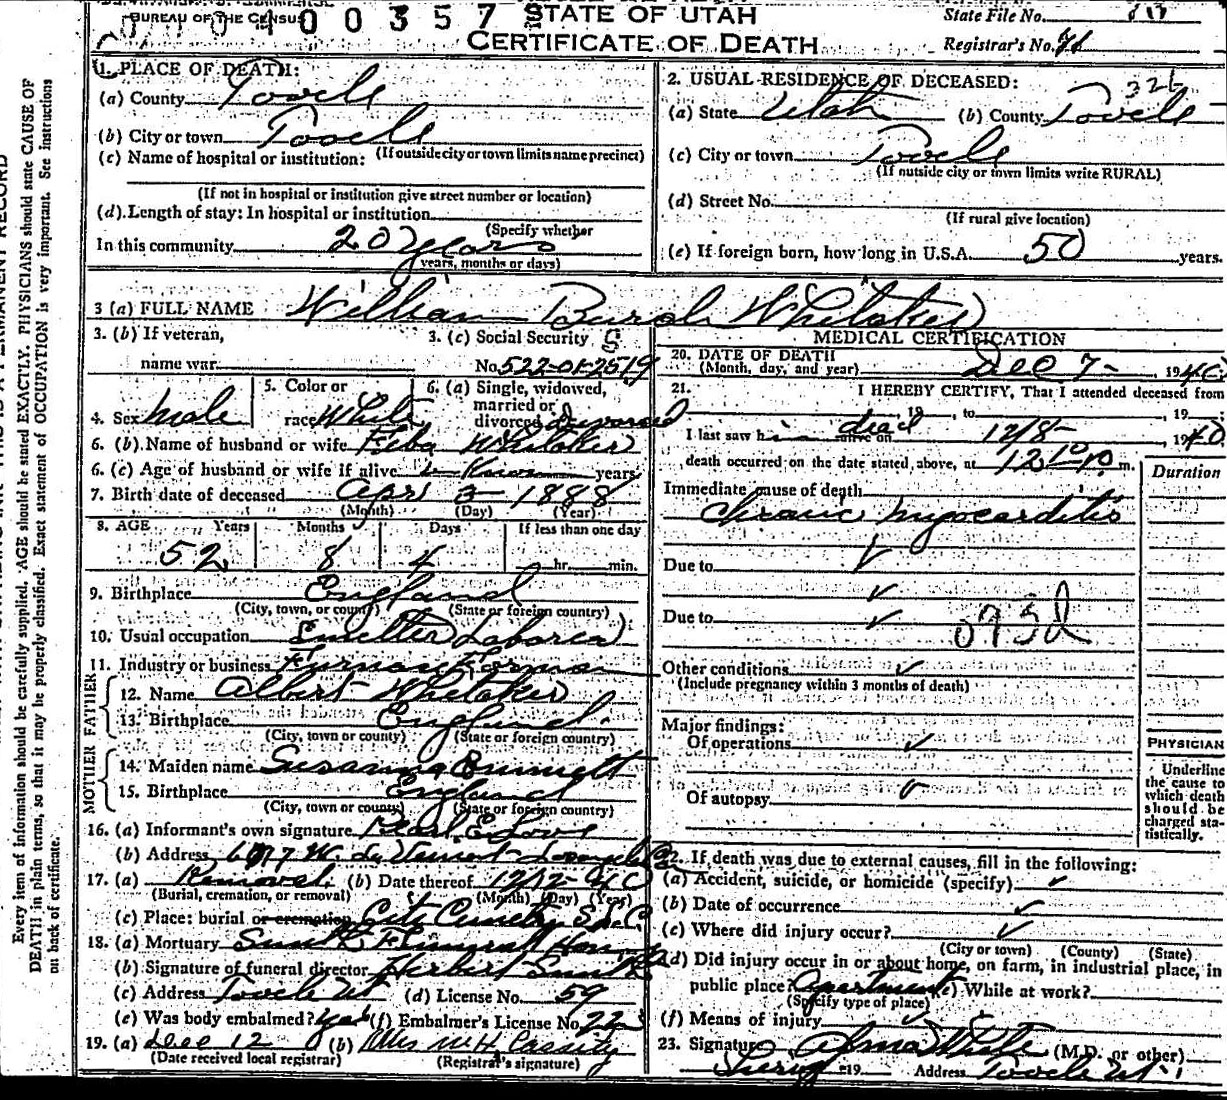 BUREAU OF THE CENSUS
00357
STATE OF UTAH
CERTIFICATE OF DEATH
State File No.
Registrar's No. 71
1. PLACE OF DEATH:
(a) County Tooele
(b) City or town Tooele
(If outside city or town limits name precinct)
(c) Name of hospital or institution:
(If not in hospital or institution give street number or location)
(d) Length of stay: In hospital or institution
(Specify whether
In this community 20 years
years, months or days)
2. USUAL RESIDENCE OF DECEASED:
326
(a) State Utah (b) County Tooele
(c) City or town Tooele
(If outside city or town limits write RURAL)
(d) Street No.
(If rural give location)
(e) If foreign born, how long in U.S.A. 50 years.
3 (a) FULL NAME William Whitaker
3. (b) If veteran,
name war
3. (c) Social Security
No. 522-01-2519
4. Sex male
5. Color or
race White
6. (a) Single, widowed,
married or
divorced Divorced
6. (b) Name of husband or wife Whitaker
6. (c) Age of husband or wife if alive years
7. Birth date of deceased Apr 3 - 1888
(Month) (Day) (Year)
8. AGE Years Months Days If less than one day
52 8 4 hr. min.
9. Birthplace England
(City, town, or county) (State or foreign country)
10. Usual occupation Smelter Laborer
11. Industry or business Furnace Forman
FATHER
12. Name Albert Whitaker
13. Birthplace England
(City, town or county) (State or foreign country)
MOTHER
14. Maiden name Susanna Emmett
15. Birthplace England
(City, town or county) (State or foreign country)
16. (a) Informant's own signature Pearl E Love
(b) Address W. Los Angeles
17. (a) Removal (b) Date thereof 12/12-40
(Burial, cremation, or removal) (Month) (Day) (Year)
(c) Place: burial or cremation City Cemetery S.L.C.
18. (a) Mortuary Funeral Home
(b) Signature of funeral director Herbert
(c) Address Tooele Ut (d) License No. 59
(e) Was body embalmed? yes (f) Embalmer's License No. 223
19. (a) Dec 12 (b) Mrs M H Cassity
(Date received local registrar) (Registrar's signature)
MEDICAL CERTIFICATION
20. DATE OF DEATH
(Month, day, and year) Dec 7- , 1940
21. I HEREBY CERTIFY, That I attended deceased from
, 19 , to , 19
I last saw him dead alive on 12/8- , 1940
death occurred on the date stated above, at m.
Duration
Immediate cause of death
Chronic myocarditis
Due to
Due to
093d
Other conditions
(Include pregnancy within 3 months of death)
Major findings:
Of operations
Of autopsy
PHYSICIAN
Underline
the cause to
which death
should be
charged sta-
tistically.
22. If death was due to external causes, fill in the following:
(a) Accident, suicide, or homicide (specify)
(b) Date of occurrence
(c) Where did injury occur?
(City or town) (County) (State)
(d) Did injury occur in or about home, on farm, in industrial place, in
public place? Apartment (e) While at work?
(Specify type of place)
(f) Means of injury
23. Signature Alma White (M.D. or other)
19 Address Tooele Ut
Every item of information should be carefully supplied. AGE should be stated EXACTLY. PHYSICIANS should state CAUSE OF
DEATH in plain terms, so that it may be properly classified. Exact statement of OCCUPATION is very important. See instructions
on back of certificate.